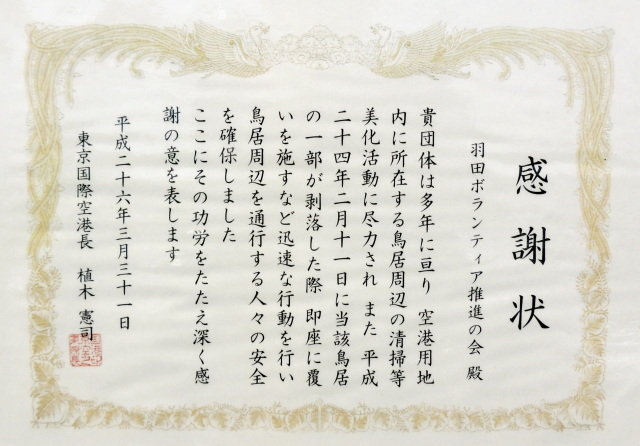 感謝状
羽田ボランティア推進の会 殿
貴団体は多年に亘り 空港用地
内に所在する鳥居周辺の清掃等
美化活動に尽力され また 平成
二十四年二月十一日に当該鳥居
の一部が剥落した際 即座に覆
いを施すなど迅速な行動を行い
鳥居周辺を通行する人々の安全
を確保しました
ここにその功労をたたえ深く感
謝の意を表します
平成二十六年三月三十一日
東京国際空港長 植木 憲司